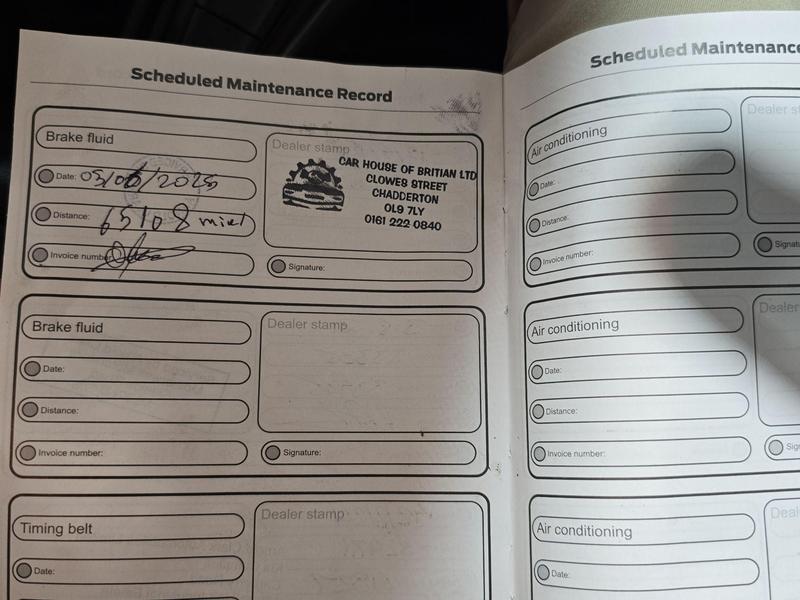 Scheduled Maintenance Record
Brake fluid
Date: 05/06/2025
Distance: 65108 miel
Invoice number
Dealer stamp
CAR HOUSE OF BRITIAN LTD
CLOWES STREET
CHADDERTON
OL9 7LY
0161 222 0840
Signature:
Brake fluid
Date:
Distance:
Invoice number:
Dealer stamp
Signature:
Timing belt
Date:
Dealer stamp
Scheduled Maintenance
Air conditioning
Date:
Distance:
Invoice number:
Dealer st
Signatu
Air conditioning
Date:
Distance:
Invoice number:
Dealer
Sig
Air conditioning
Date:
Deal